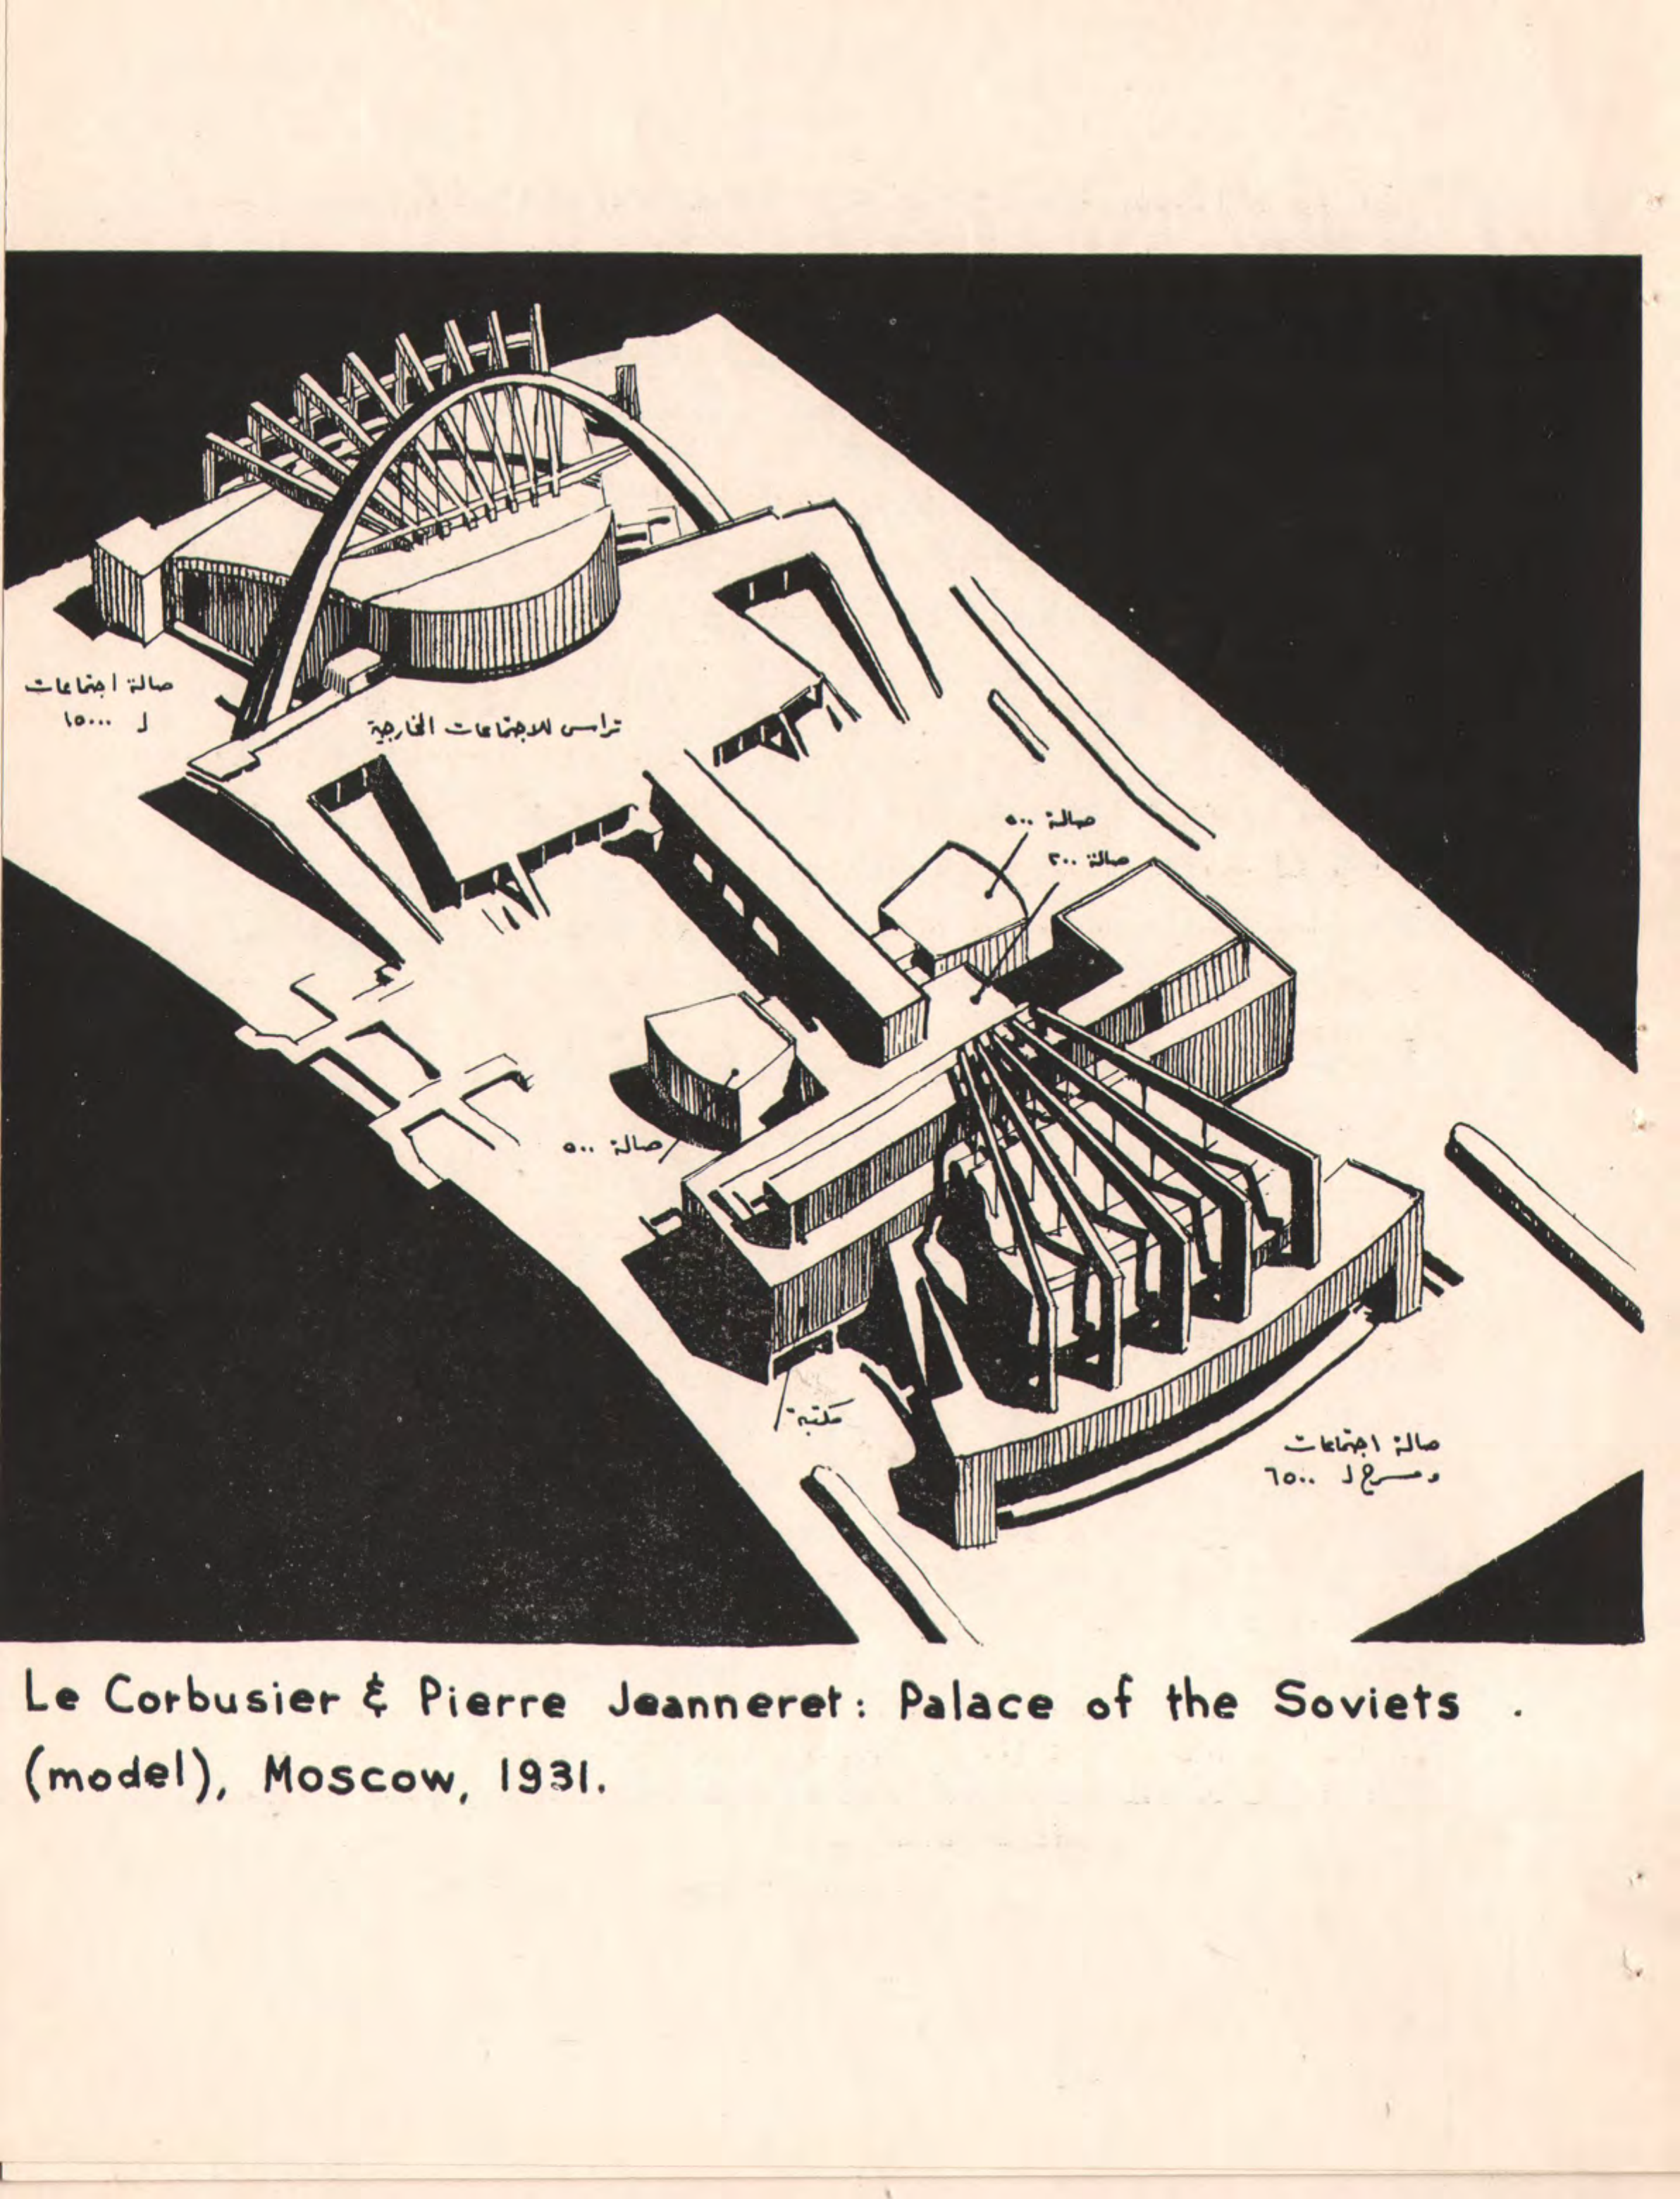 صالة اجتماعات
ل ١٥٠٠٠
تراس للاجتماعات الخارجية
صالة ٥٠٠
صالة ٢٠٠
صالة ٥٠٠
مكتبة
صالة اجتماعات
ومسرح ل ٦٥٠٠
Le Corbusier & Pierre Jeanneret: Palace of the Soviets .
(model), Moscow, 1931.